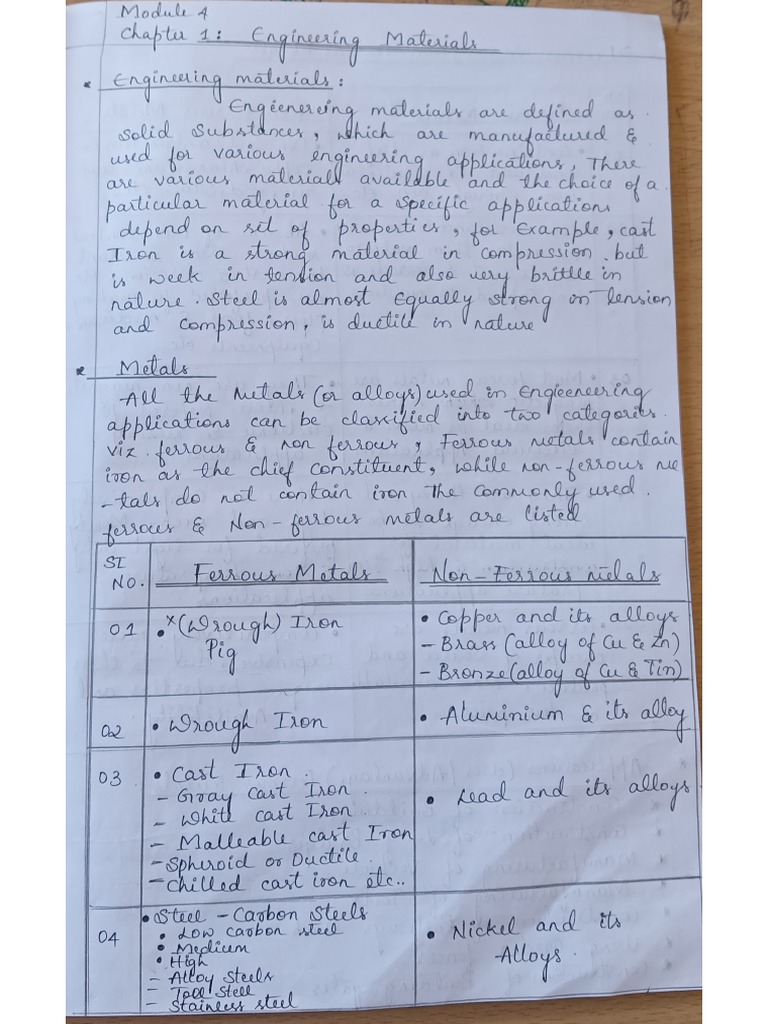 Module 4
Chapter 1: Engineering Materials
* Engineering materials:
Engieenereing materials are defined as
solid substances, which are manufactured &
used for various engineering applications, There
are various materials available and the choice of a
particular material for a specific applications
depend on set of properties, for Example, cast
Iron is a strong material in compression but
is week in tension and also very brittle in
nature. Steel is almost Equally strong in tension
and compression, is ductile in nature
* Metals
All the Metals (or alloys) used in Engieeneering
applications can be classified into two categories.
viz. ferrous & non ferrous, Ferrous metals contain
iron as the chief constituent, while non-ferrous me
-tals do not contain iron The commonly used.
ferrous & Non-ferrous metals are listed
SI No. Ferrous Metals Non-Ferrous metals
01 • x(Wrough) Iron • Copper and its alloys
Pig – Brass (alloy of Cu & Zn)
– Bronze (alloy of Cu & Tin)
02 • Wrough Iron • Aluminium & its alloy
03 • Cast Iron. • Lead and its alloys
– Gray cast Iron.
– White cast Iron
– Malleable cast Iron
– Spheroid or Ductile.
– Chilled cast iron etc..
04 • Steel – Carbon Steels • Nickel and its Alloys.
• Low carbon steel
• Medium
• High
– Alloy Steels
– Tool Steel
– Stainless steel